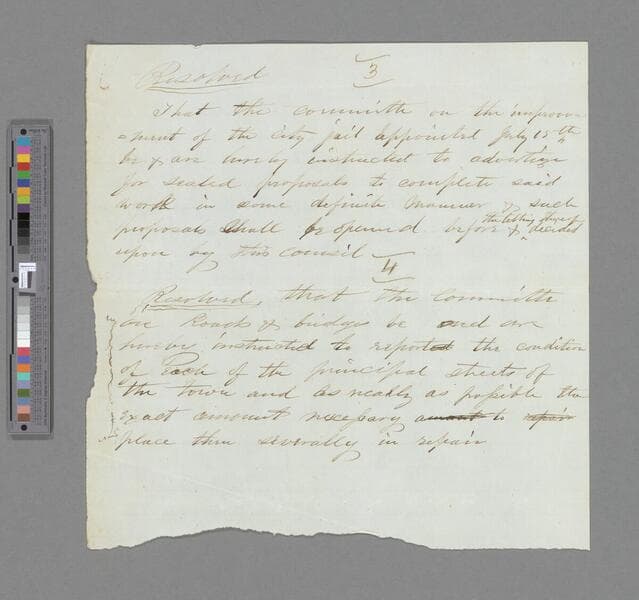 3
Resolved
That the committe on the improve
-ment of the city jail appointed July 15th
be & are hereby instructed to advertize
for sealed proposals to complete said
work in some definite manner & such
proposals shall be opened before & the letting thereof decided
upon by this council
4
Resolved, that the Committe
on Roads & bridges be and are
hereby instructed to report the condition
of Each of the principal streets of
the town and as nearly as possible the
exact amount necessary amount to repair
place them severally in repair